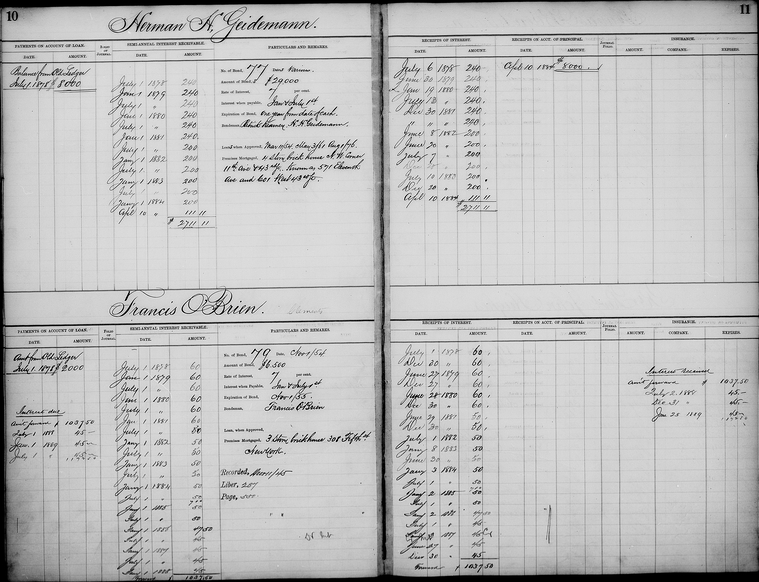 10
11
Herman H. Geidemann.
PAYMENTS ON ACCOUNT OF LOAN.
DATE. AMOUNT.
SEMI-ANNUAL INTEREST RECEIVABLE.
DATE. AMOUNT.
PARTICULARS AND REMARKS.
Balance from Old Ledger
July 1. 1878 $ 8000
July 1 1878 240
Jan 1 1879 240
July 1 " 240
Jan 1 1880 240
July 1 " 240
Jan 1 1881 240
July 1 " 200
Jany 1 1882 200
July 1 " 200
Jany 1 1883 200
July 1 " 200
Jany 1 1884 200
Apl 10 " 111 11
$ 2711 11
No. of Bond, 77 Dated Various
Amount of Bond, $29,000
Rate of Interest, 7 per cent.
Interest when payable, Jan & July 1st
Expiration of Bond, One year from date of each
Bondsmen, H. H. Geidemann.
Loan when Approved,
Premises Mortgaged,
11th Ave & 43rd St.
Ave and 601 West 43rd St.
RECEIPTS OF INTEREST.
DATE. AMOUNT.
RECEIPTS ON ACCT. OF PRINCIPAL.
DATE. AMOUNT.
INSURANCE.
AMOUNT. COMPANY. EXPIRES.
July 6 1878 240
June 20 1879 240
Jan 19 1880 240
July 12 " 240
Dec 30 1881 240
" " " 240
June 8 1882 200
June 20 " 200
July 7 " 200
" 200
July 10 1883 200
Dec 20 " 200
Apl 10 1884 111 11
$ 2711 11
Apl 10 1884 $ 8000
Francis O'Brien.
PAYMENTS ON ACCOUNT OF LOAN.
DATE. AMOUNT.
SEMI-ANNUAL INTEREST RECEIVABLE.
DATE. AMOUNT.
PARTICULARS AND REMARKS.
Amt from Old Ledger
July 1. 1878 $ 2000
Interest due
Amt forward $ 1037.50
July 1 1888 45.—
Jan. 1 1889 45.—
July 1 "
July 1 1878 60
Jan 1 1879 60
July 1 " 60
Jan 1 1880 60
July 1 " 60
Jan 1 1881 60
July 1 " 50
Jany 1 1882 50
July 1 " 60
Jany 1 1883 50
July 1 " 50
Jany 1 1884 50
July 1 " 50
Jany 1 1885 50
July 1 " 50
Jany 1 1886 47.50
July 1 " 45
Jany 1 1887 45
July 1 " 45
Jany 1 1888 45
Forward $ 1037.50
No. of Bond, 79 Date, Nov 1/54
Amount of Bond, $6,500
Rate of Interest, 7 per cent.
Interest when Payable, Jan & July 1st
Expiration of Bond, Nov 1/55.
Bondsmen, Francis O'Brien
Loan, when Approved,
Premises Mortgaged, 3 Story brick house 308 Fifth St
New York.
Recorded,
Liber, 207
Page,
RECEIPTS OF INTEREST.
DATE. AMOUNT.
RECEIPTS ON ACCT. OF PRINCIPAL.
DATE. AMOUNT.
INSURANCE.
AMOUNT. COMPANY. EXPIRES.
July 1 1878 60
Dec 30 " 60
June 27 1879 60
Dec 27 " 60
June 28 1880 60
Dec 30 " 60
June 29 1881 50
Dec 30 " 50
July 1 1882 50
Jany 8 1883 50
June 30 " 50
Jany 3 1884 50
July 1 " 50
Jany 2 1885 50
July 1 " 50
Jany 2 1886 47.50
July 1 " 45
1887 45
June 27 " 45
Dec 30 " 45
Forward $ 1037.50
Interest received
Amt forward $ 1037.50
July 2 1888 45.—
Dec 31 " 45.—
Jun 25 1889 45.—